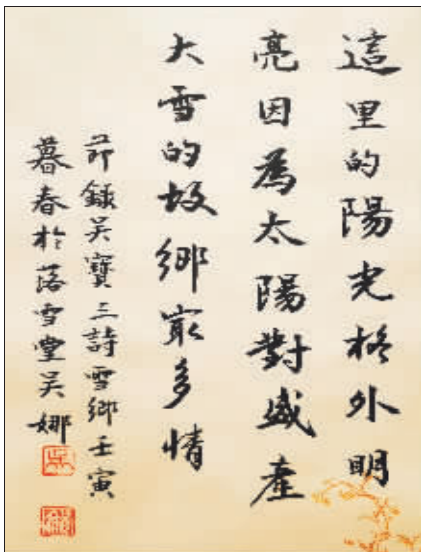 這里的陽光格外明
亮因為太陽對盛產
大雪的故鄉最多情
節錄吳寶三詩雪鄉壬寅
暮春於落雪堂吳娜